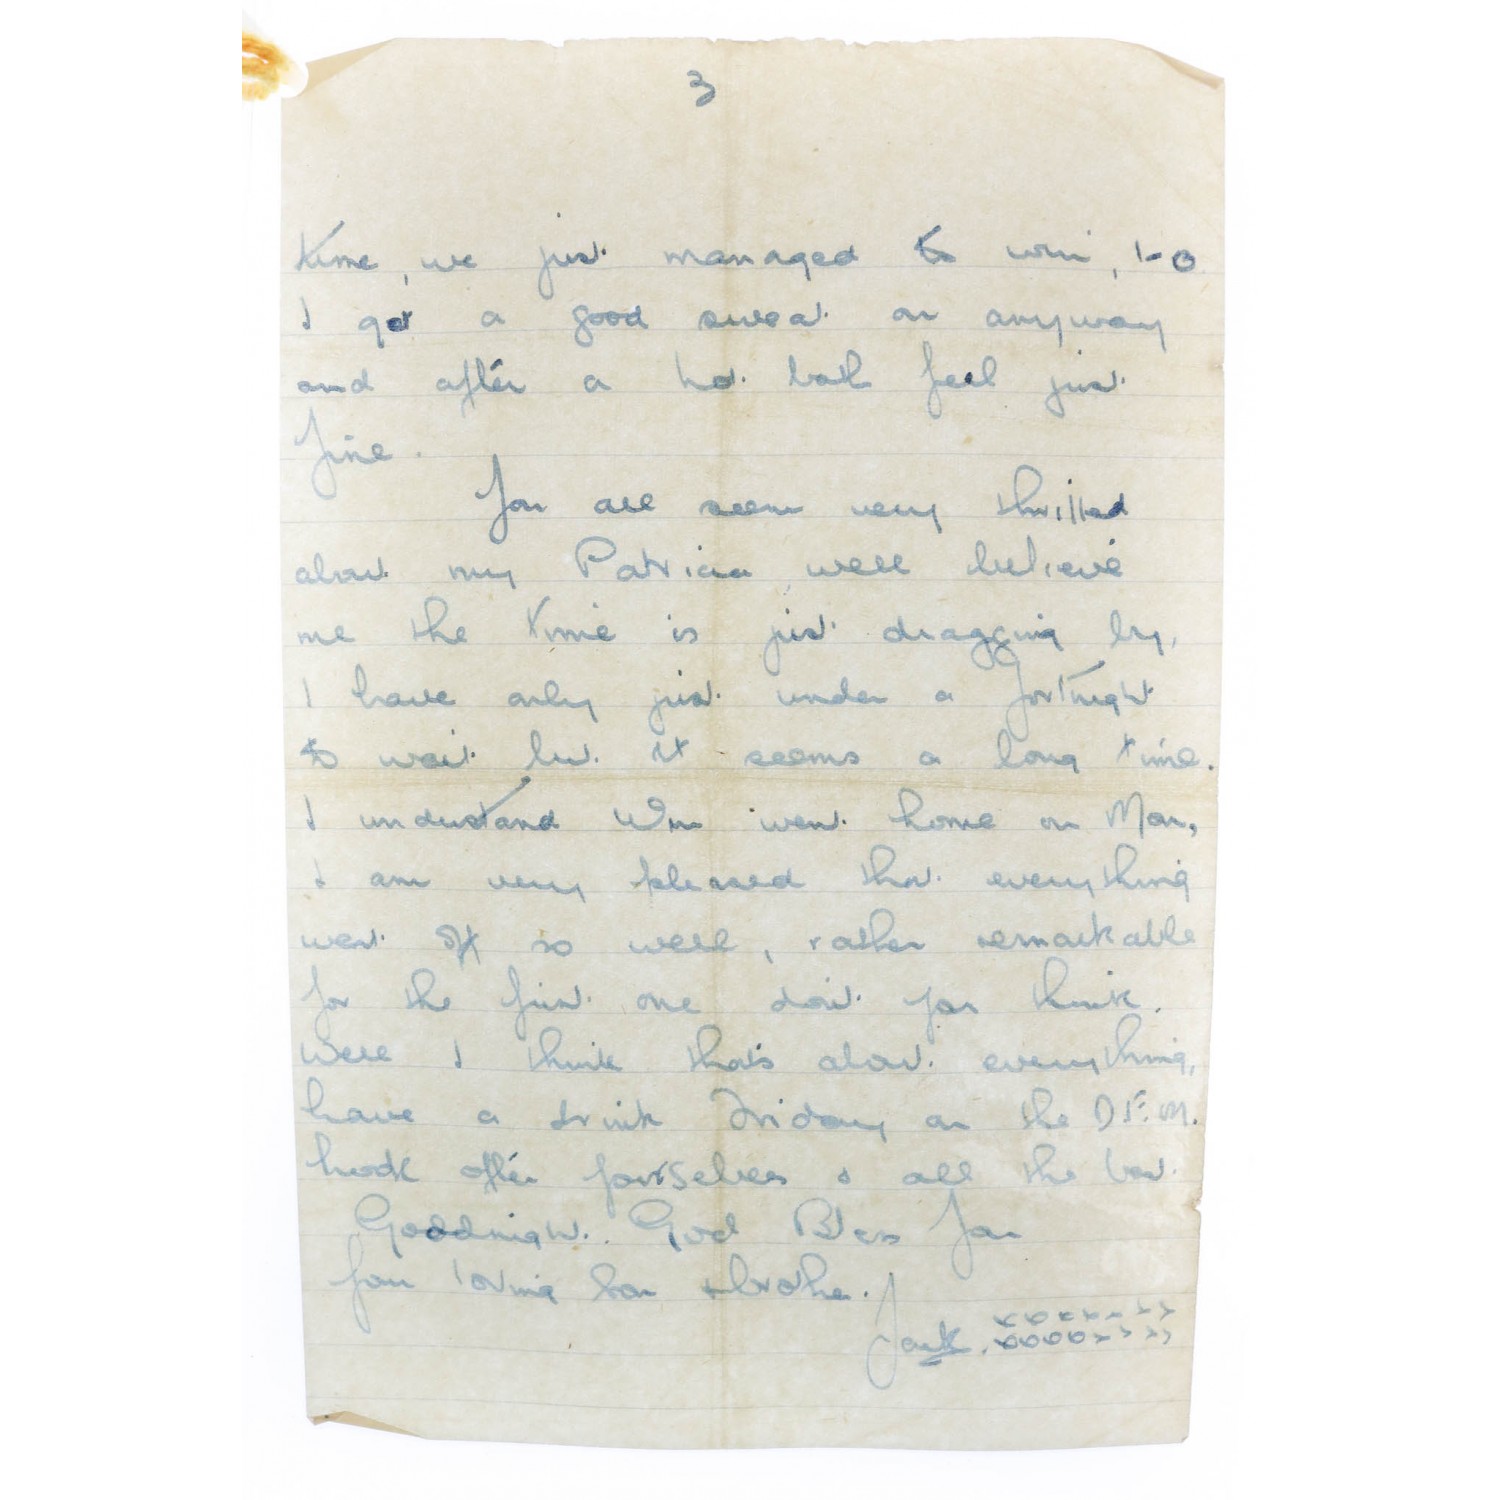 3
time, we just managed to win, 1-0
I got a good sweat on anyway
and after a hot bath feel just
fine.
You all seem very thrilled
about my Patricia, well believe
me the time is just dragging by,
I have only just under a fortnight
to wait but it seems a long time.
I understand Win went home on Mon,
I am very pleased that everything
went off so well, rather remarkable
for the first one don't you think.
Well I think that's about everything,
have a drink Friday on the D.F.M.
look after yourselves & all the best
Goodnight. God Bless You
Your loving son & brother.
Jack. xxxxxxxx
xxxxxxxx